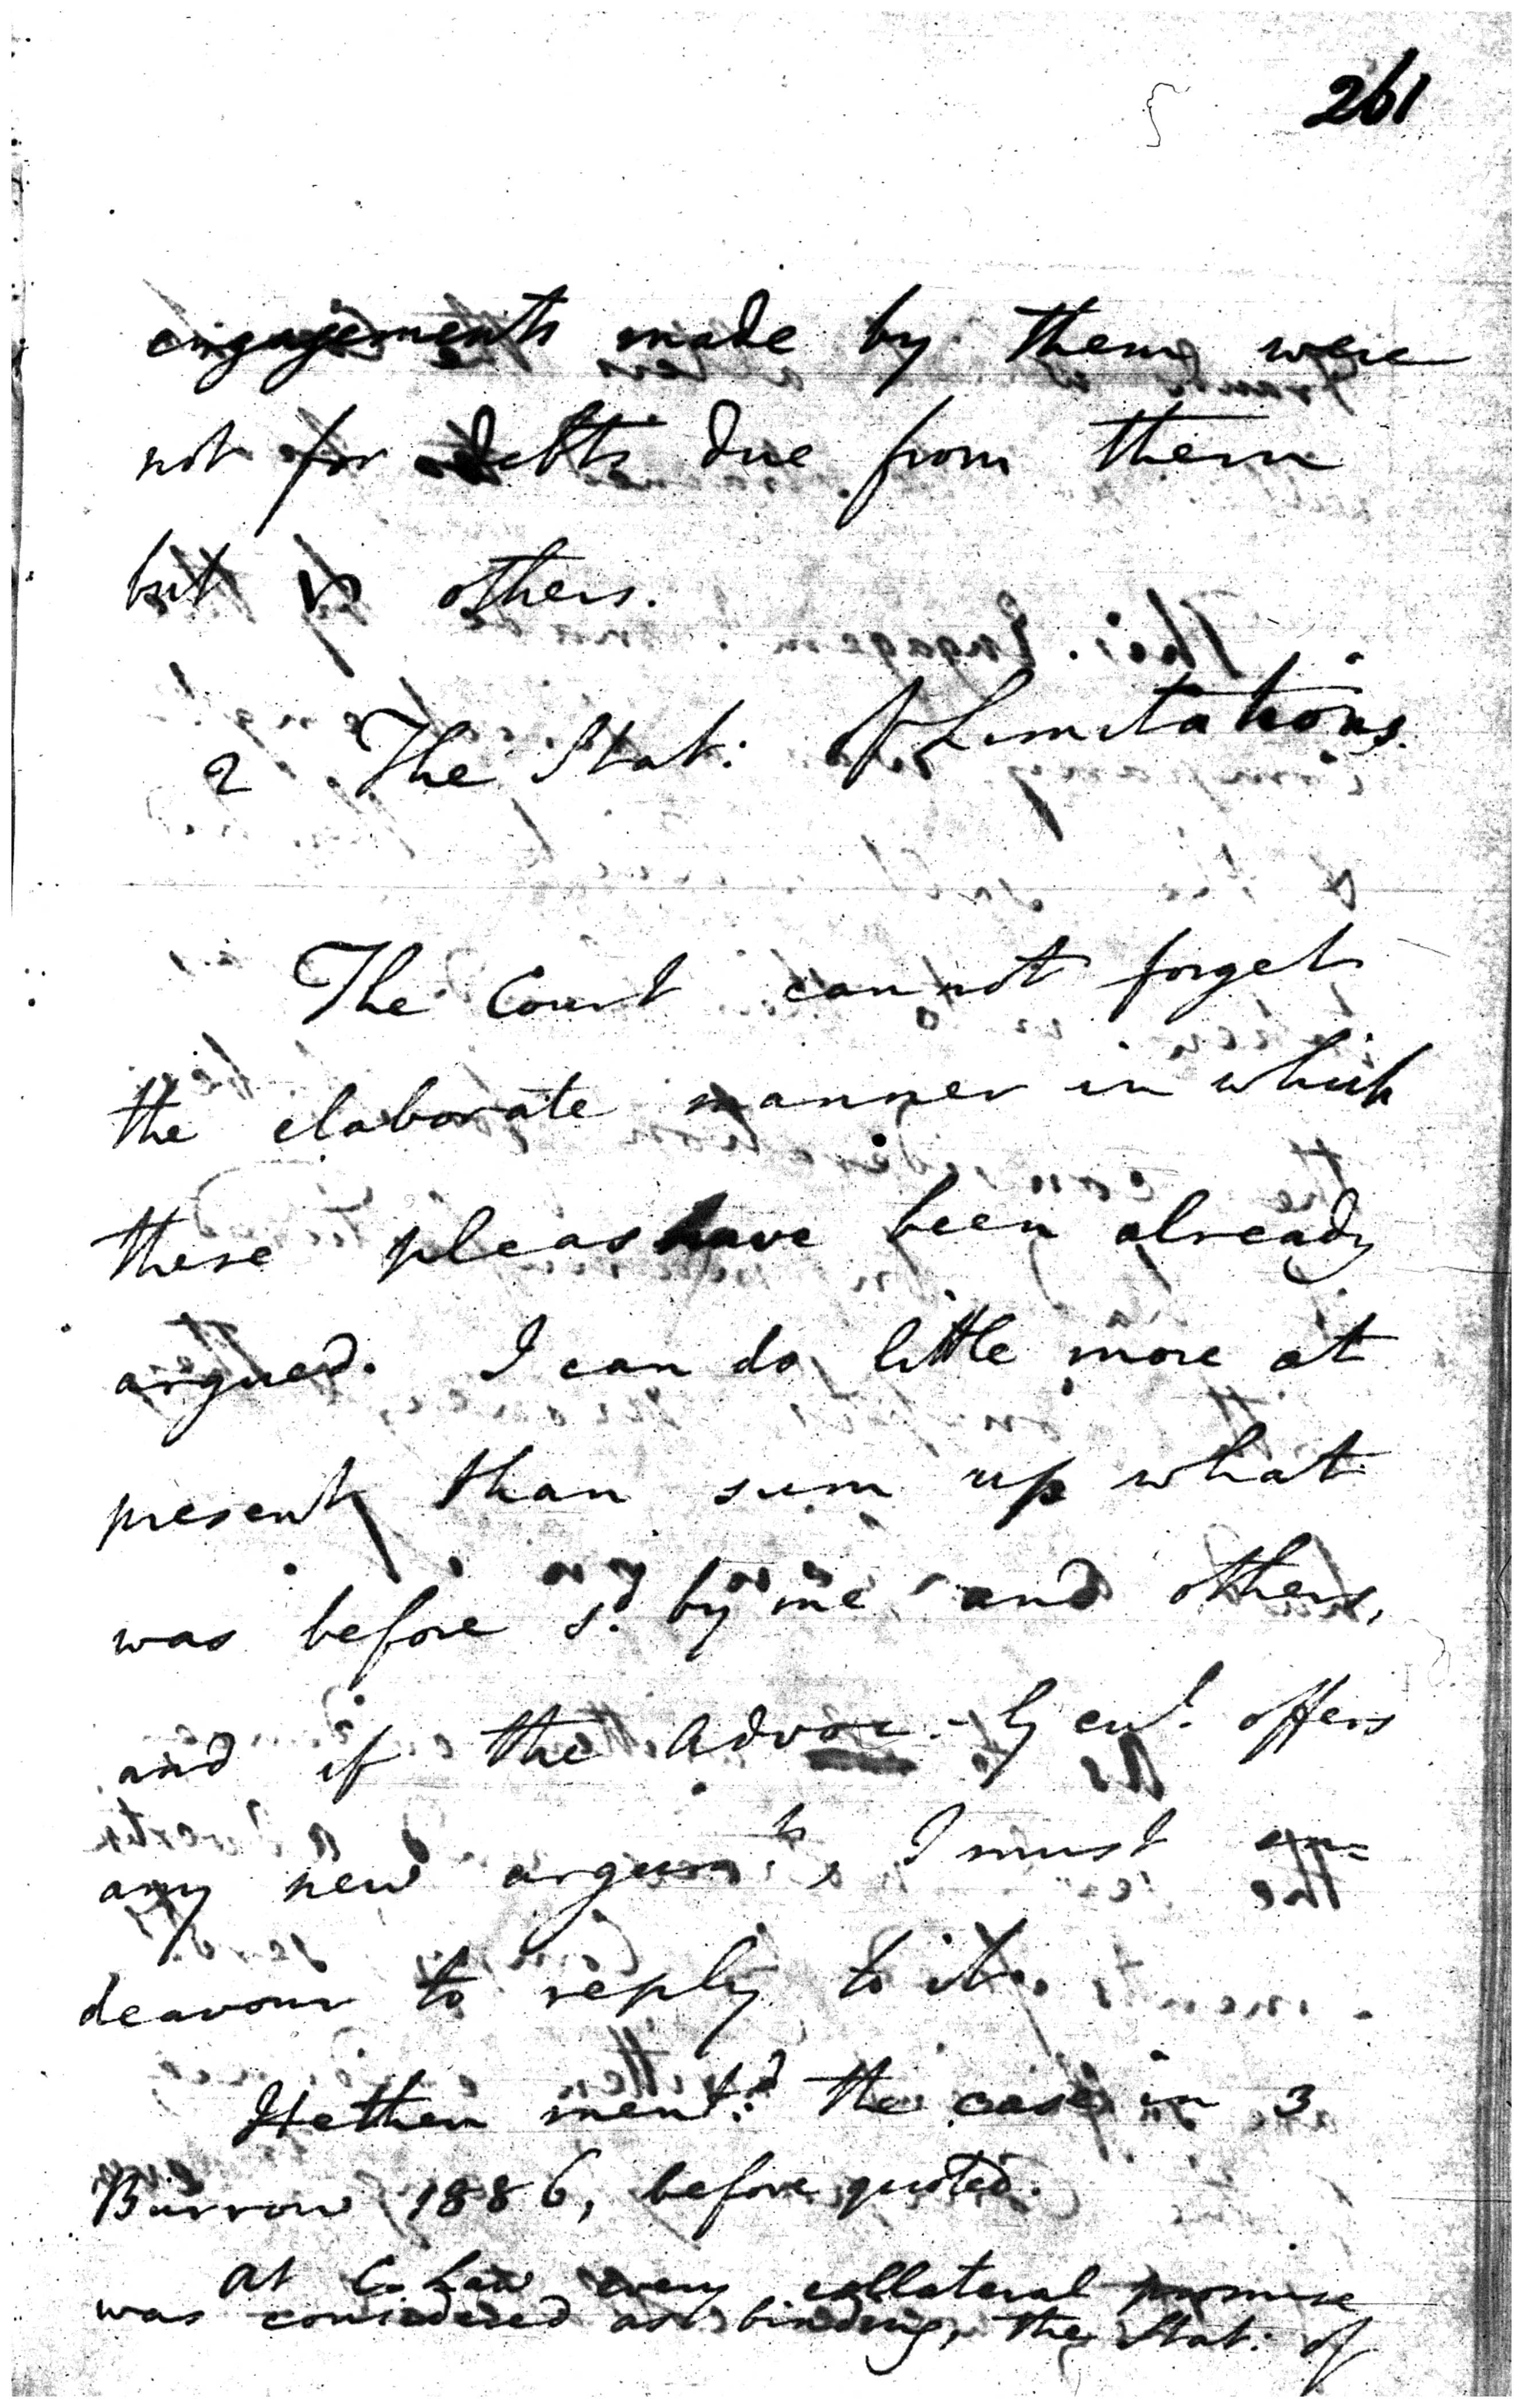 261
engagements made by them were
not for debts due from them
but by others.
2 The Stat: of Limitations.
The Court cannot forget
the elaborate manner in which
these pleas have been already
argued. I can do little more at
present than sum up what
was before sd. by me and others,
and if the Advoc-Genl. offers
any new argumts, I must en=
deavour to reply to it.
He then mentd: the case in 3
Burrow 1886, before quoted.
At C. Law every collateral promise
was considered as binding, the Stat: of